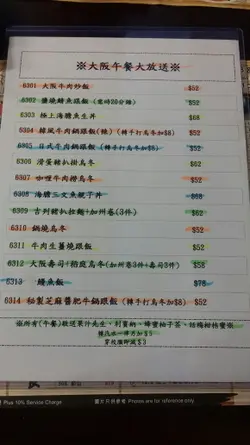 ※大阪午餐大放送※
6301 大阪牛肉炒飯 $52
6302 鹽燒鯖魚跟飯(需時20分鐘) $52
6303 極上海膽魚生丼 $68
6304 韓風牛肉鍋跟飯(辣)(轉手打烏冬加$8) $52
6305 日式牛肉鍋跟飯(轉手打烏冬加$8) $52
6306 滑蛋豬扒揚烏冬 $62
6307 咖喱牛肉撈烏冬 $52
6308 海膽三文魚親子丼 $68
6309 吉列豬扒拉麵+加州卷(3件) $62
6310 鍋燒烏冬 $52
6311 牛肉生薑燒跟飯 $52
6312 大阪壽司+稻庭烏冬(加州卷3件+壽司3件) $58
6313 鰻魚飯 $78
6314 秘製芝麻醬肥牛鍋跟飯(轉手打烏冬加$8) $52
※所有(午餐)敬送果汁先生,利賓納,蜂蜜柚子茶,
穿校服即減$3
Plus 10% Service Charge
圖片只供參考 Photos are for reference only